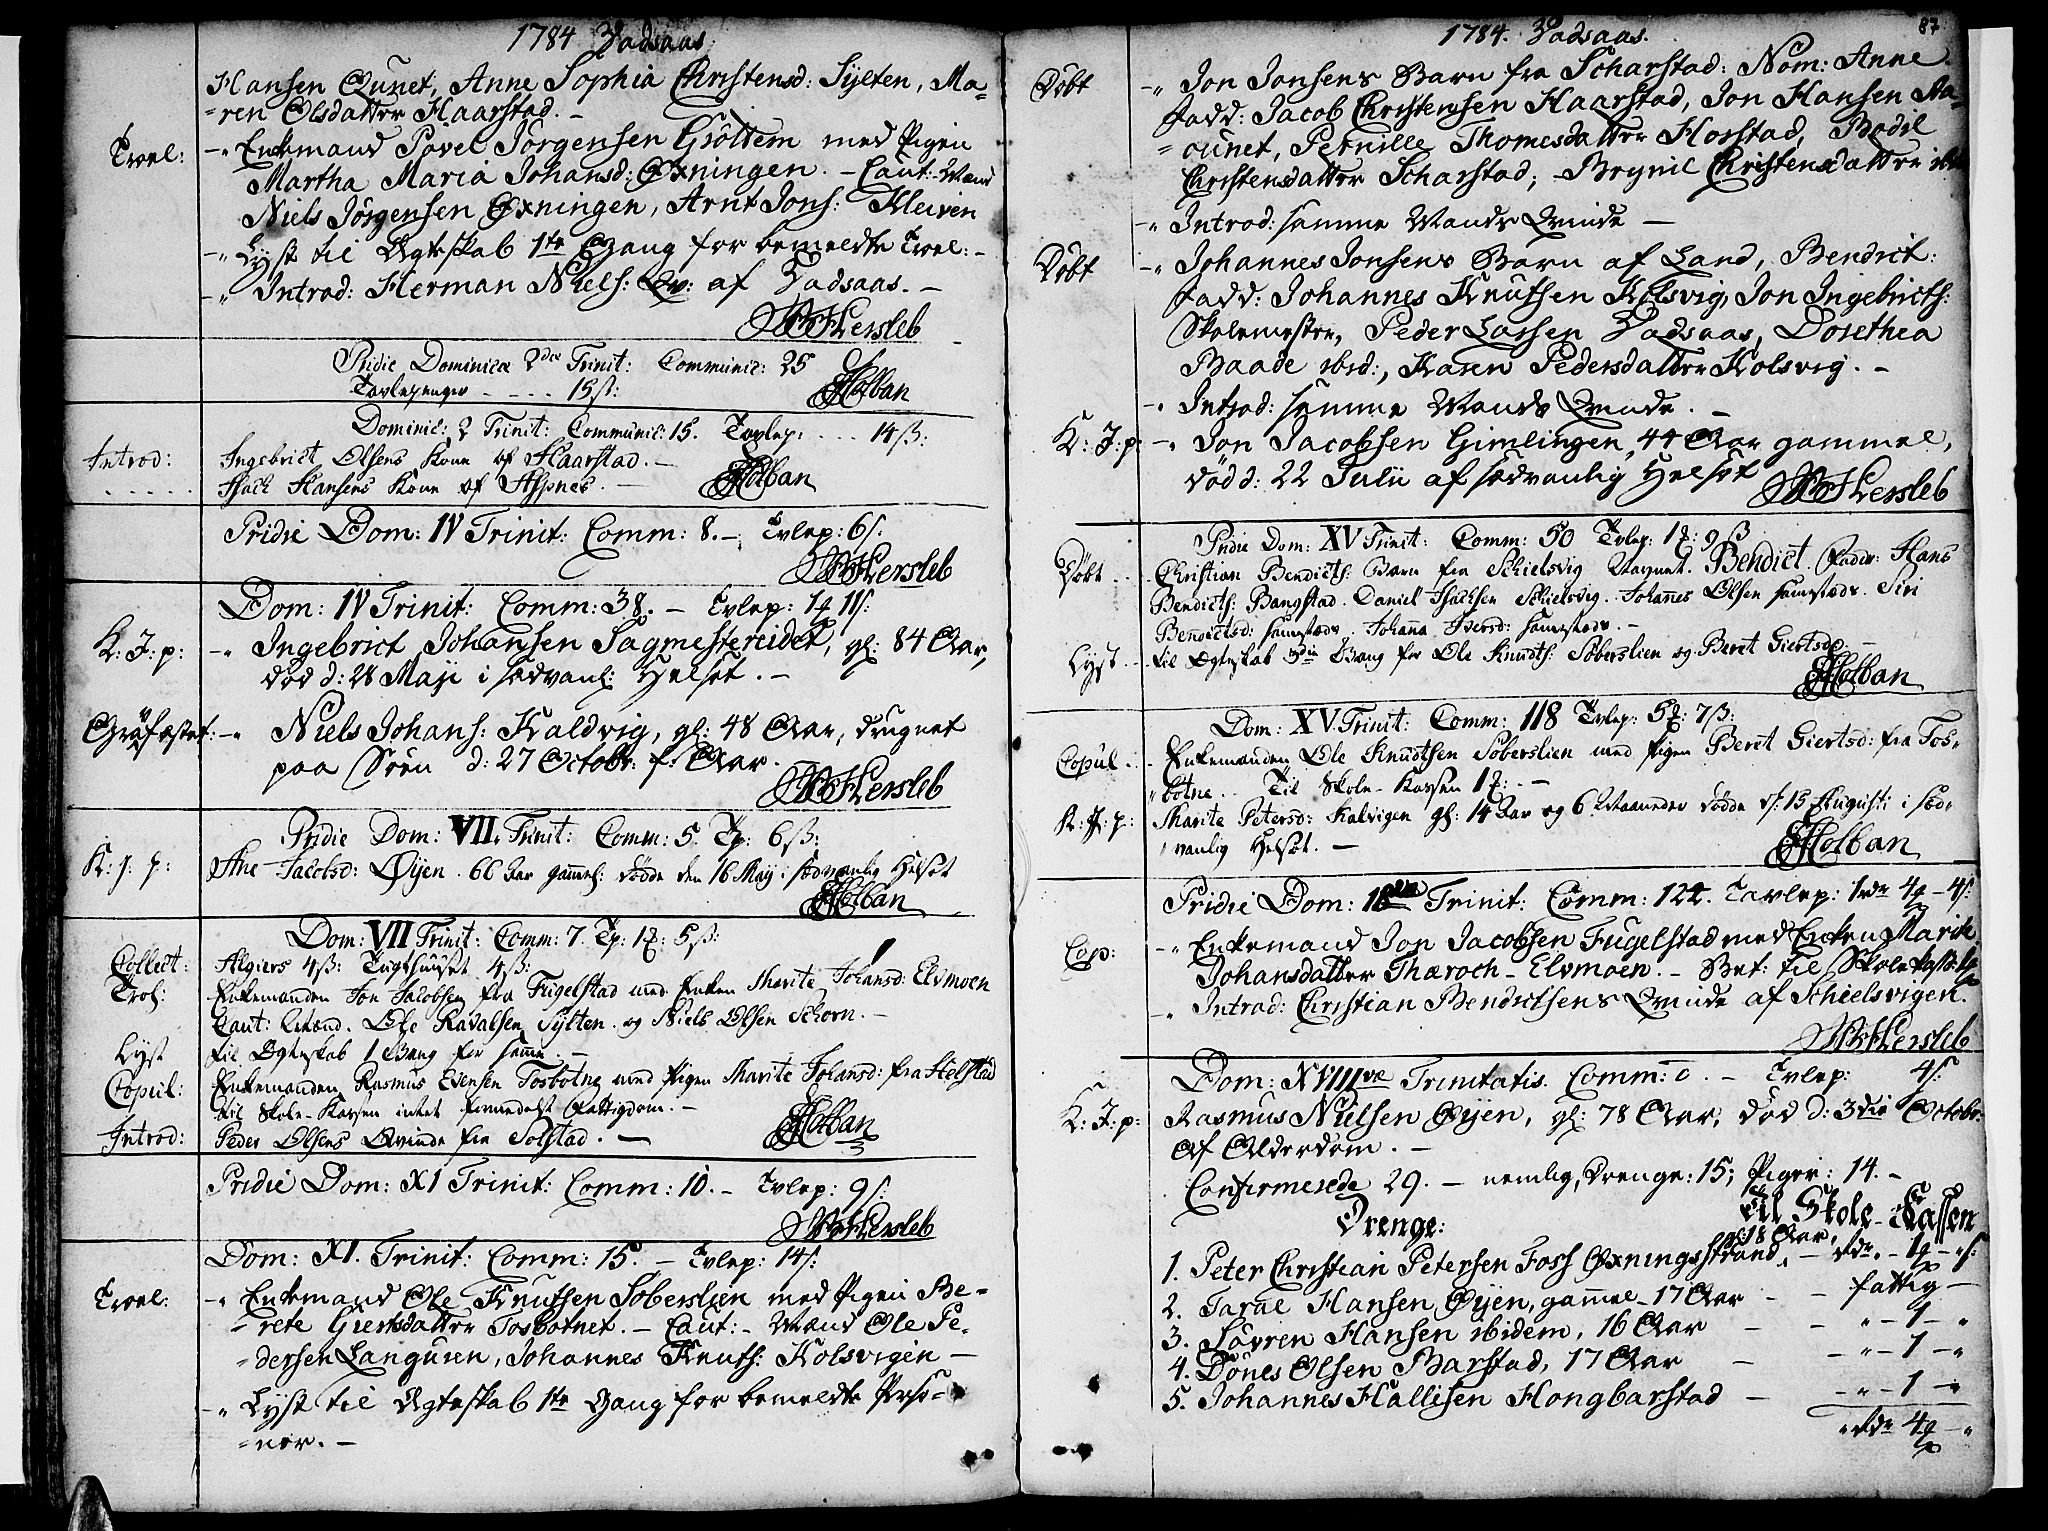 1784 Vadsaas
Hansen Qunet, Anne Sophia Christensd: Sÿlten, Ma-
-ren Olsdatter Haarstad. -
Trol: -„ Enkemand Povel Jörgensen Gröttem med Pigen
Martha Maria Johansd: Öxningen. - Caut: Mænd
Niels Jörgensen Öxningen, Arnt Jons: Kleiven
-„ Lyst til Ægteskab 1te Gang for bemeldte Trol: -
-„ Introd: Herman Niels: Qv: af Vadsaas. -
Hersleb
Pridie Dominica 2dea Trinit: Communic: 25
Tavlepenger - - - - 15 ß: Holban
Dominic: 2 Trinit: Communic: 15. Tavlep: . . . 14 ß:
Introd: Ingebrict Olsens Kone af Haarstad. -
. . . . . Isach Hansens Kone af Aspnes. - Holban
Pridie Dom: IV Trinit: Comm: 8. - Tvlep: 6 ß:
Hersleb
Dom: IV Trinit: Comm: 38. - Tvlep: 1 11 ß:
K: J: p: -„ Ingebrict Johansen Sagmestereidet, gl: 84 Aar,
död d: 28 Maji i sædvanl: Helsot. -
Gravfæstet: -„ Niels Johans: Kaldvig, gl: 48 Aar, druknet
paa Söen d: 27 Octobr: f: Aar.
Hersleb
Pridie Dom: VII. Trinit: Comm: 5. Tp: 6 ß:
K: J: p: Ane Jacobsd: Öyen. 66 Aar gammel: dödde den 16 Maÿ i sædvanlig Helsot
Holban
Dom: VII Trinit: Comm: 7. Tp: 1: 5 ß:
Collect: Algiers 4 ß: Tugthuuset 4 ß:
Trol: Enkemanden Jon Jacobsen fra Fugelstad med Enken Marite Johansd: Elvmoen
Caut: Mænd. Ole Ravalsen Sylten. og Niels Olsen Schorn. -
Lyst til Ægteskab 1 Gang for samme. -
Copul: Enkemanden Rasmus Evensen Tosbotne med Pigen Marite Johansd: fra Helstad
til Skole-Kassen intet formedelst Fattigdom. -
Introd: Peder Olsens Qvinde fra Solstad. - Holban
Pridie Dom: XI Trinit: Comm: 10. - Tvlep: 9 ß:
Hersleb
Dom: XI. Trinit: Comm: 15. - Tvlep: 14 ß:
Trol: -„ Enkemand Ole Knutsen Soberslien med Pigen Be-
-rete Giertsdatter Tosbotnet. - Caut:- Mænd Ole Pe-
-dersen Langusen, Johannes Knuts: Kolsvigen -
-„ Lyst til Ægteskab 1te Gang for bemeldte Perso-
-ner. -
1784. Vadsaas. 87
Döbt -„ Jon Jonsens Barn fra Scharstad: Nom: Anne.
Fadd: Jacob Christensen Haarstad, Jon Hansen Aa-
-ounet, Pernille Thomesdatter Horstad, Bodil
Christensdatter Scharstad; Brynil Christensdatter ibid
-„ Introd: samme Mands Qvinde -
Döbt -„ Johannes Jonsens Barn af Land, Bendict:
Fadd: Johannes Knutsen Kolsvig, Jon Ingebricts:
Skolemester, Peder Larsen Vadsaas, Dorethea
Baade ibid:, Karen Pedersdatter Kolsvig. -
-„ Introd: samme Mands Qvinde. -
K: J: p: -„ Jon Jacobsen Gimlingen, 44 Aar gammel,
död d: 22 Julii af sædvanlig Helsot
Hersleb
Pridie Dom: XV Trinit: Comm: 50 Tvlep: 1: 9 ß
Döbt . . Christian Bendicts: Barn fra Schielsvig Navnet. Bendict. Fadr: Hans
Bendicts: Bangstad. Daniel Isachsen Schielsvig. Johannes Olsen sammestæds. Siri
Bendictsd: sammestæds. Johanna Iversd: sammestæds. -
Lyst . . til Ægteskab 3die Gang for Ole Knudts: Soberslien og Beret Giertsd: -
Holban
Dom: XV. Trinit: Comm: 118 Tvlep: 5: 7 ß:
Copul . . Enkemanden Ole Knudtsen Soberslien med Pigen Beret Giertsd: fra Tos-
botne. . Til Skole-Kassen 1: -
K: J: p: Marite Petersd: Kalvigen gl: 14 Aar og 6 Maaneder dödde d: 15 Augusti i sæd-
vanlig Helsot. - Holban
Pridie Dom: 18 Trinit: Comm: 122. Tavlep: 1 rdr 4 - 4 ß:
Cop: -„ Enkemand Jon Jacobsen Fugelstad med Enken Marite
Johansdatter Thæroch-Elvmoen. - Bet: til Skolekass:
-„ Introd: Christian Bendictsens Qvinde af Schielsvigen.
Hersleb
Dom: XVIIIvæ Trinitatis. Comm: 0. - Tvlep: 4 ß:
K: J: p: Rasmus Nielsen Öyen, gl: 78 Aar, död d: 3die Octobr:
af Alderdom. -
Confirmerede 29. - nemlig, Drenge: 15; Piger: 14. -
Drenge: til Skole-Kassen
1. Peter Christian Petersen Foss Öxningsstrand, gl: 18 Aar, - rdr. - 1 - „ ß:
2. Tarae Hansen Öyen, gammel 17 Aar - - fattig -
3. Lavren Hansen ibidem, 16 Aar - - „ - 1 - „
4. Dönes Olsen Barstad, 17 Aar - - „ - 1 - „
5. Johannes Hallesen Hongbarstad - - „ - 1 - „
„ rdr 4 - „